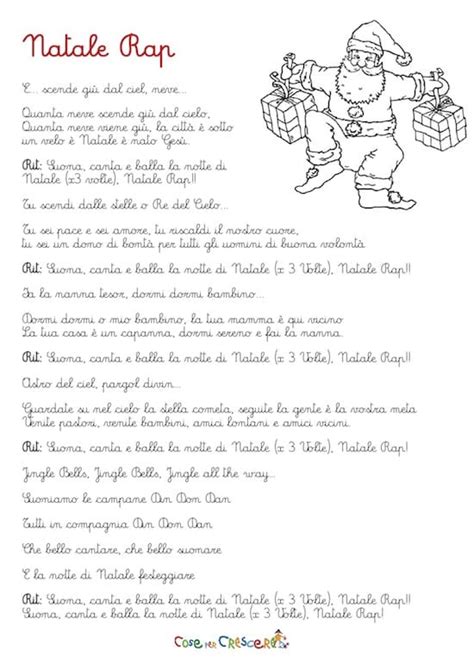 Natale Rap
E... scende giù dal ciel, neve...
Quanta neve scende giù dal cielo,
Quanta neve viene giù, la città è sotto
un velo è Natale è nato Gesù.
Rit: Suona, canta e balla la notte di
Natale (x3 volte), Natale Rap!!
Tu scendi dalle stelle o Re del Cielo...
Tu sei pace e sei amore, tu riscaldi il nostro cuore,
tu sei un dono di bontà per tutti gli uomini di buona volontà.
Rit: Suona, canta e balla la notte di Natale (x 3 Volte), Natale Rap!!
Fa la nanna tesor, dormi dormi bambino...
Dormi dormi o mio bambino, la tua mamma è qui vicino
La tua casa è un capanna, dormi sereno e fai la nanna.
Rit: Suona, canta e balla la notte di Natale (x 3 Volte), Natale Rap!!
Astro del ciel, pargol divin...
Guardate su nel cielo la stella cometa, seguite la gente è la vostra meta
Venite pastori, venite bambini, amici lontani e amici vicini.
Rit: Suona, canta e balla la notte di Natale (x 3 Volte), Natale Rap!
Jingle Bells, Jingle Bells, Jingle all the way...
Suoniamo le campane Din Don Dan
Tutti in compagnia Din Don Dan
Che bello cantare, che bello suonare
E la notte di Natale festeggiare
Rit: Suona, canta e balla la notte di Natale (x 3 Volte), Natale Rap!!
Suona, canta e balla la notte di Natale (x 3 Volte), Natale Rap!
Cose per Crescere